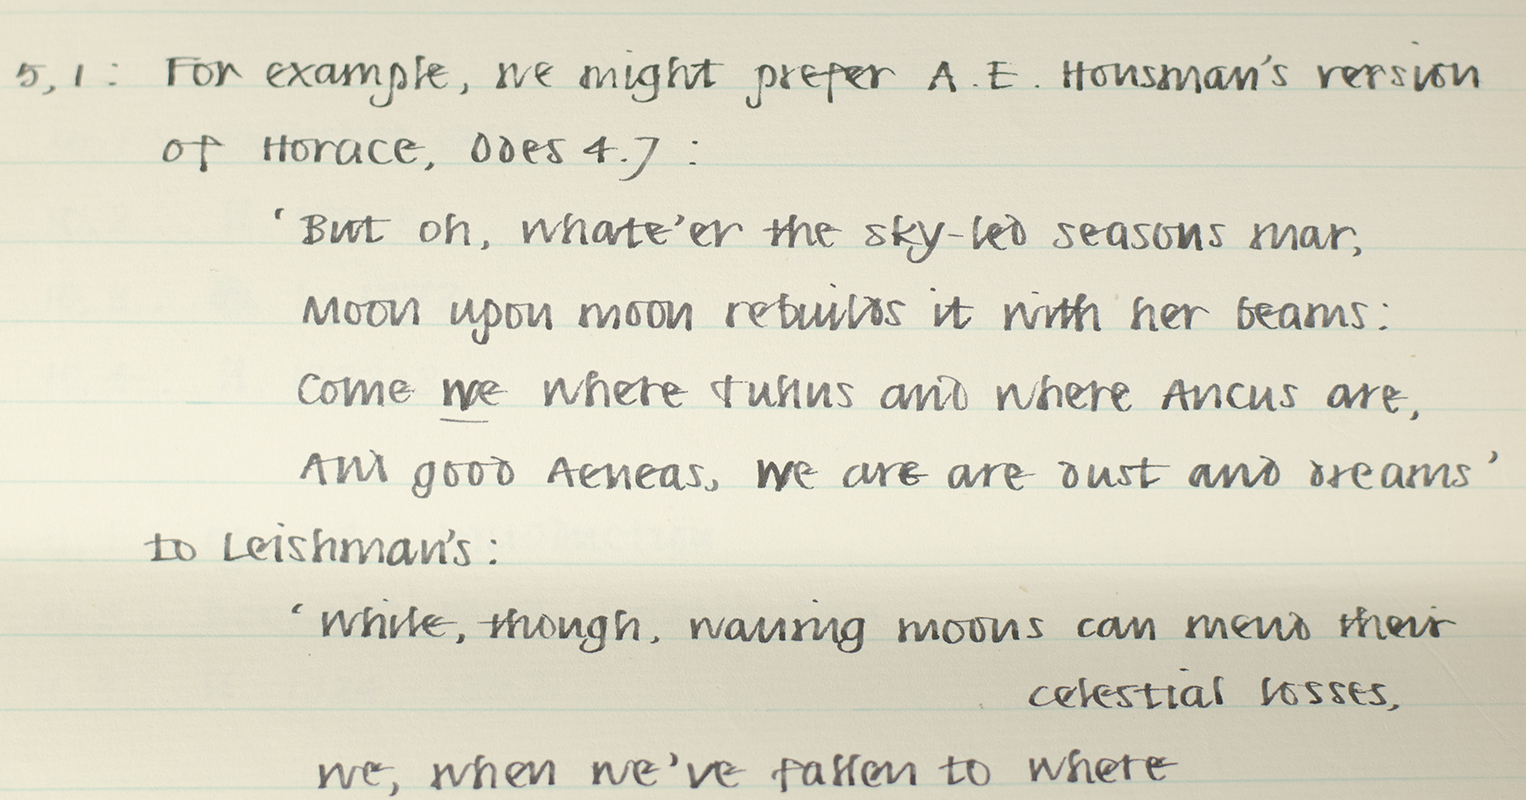 5,1: For example, we might prefer A.E. Housman's version
of Horace, Odes 4.7:
'But oh, whate'er the sky-led seasons mar,
Moon upon moon rebuilds it with her beams:
Come we where Tullus and where Ancus are,
And good Aeneas, we are are dust and dreams'
to Leishman's:
'While, though, waning moons can mend their
celestial losses,
we, when we've fallen to where